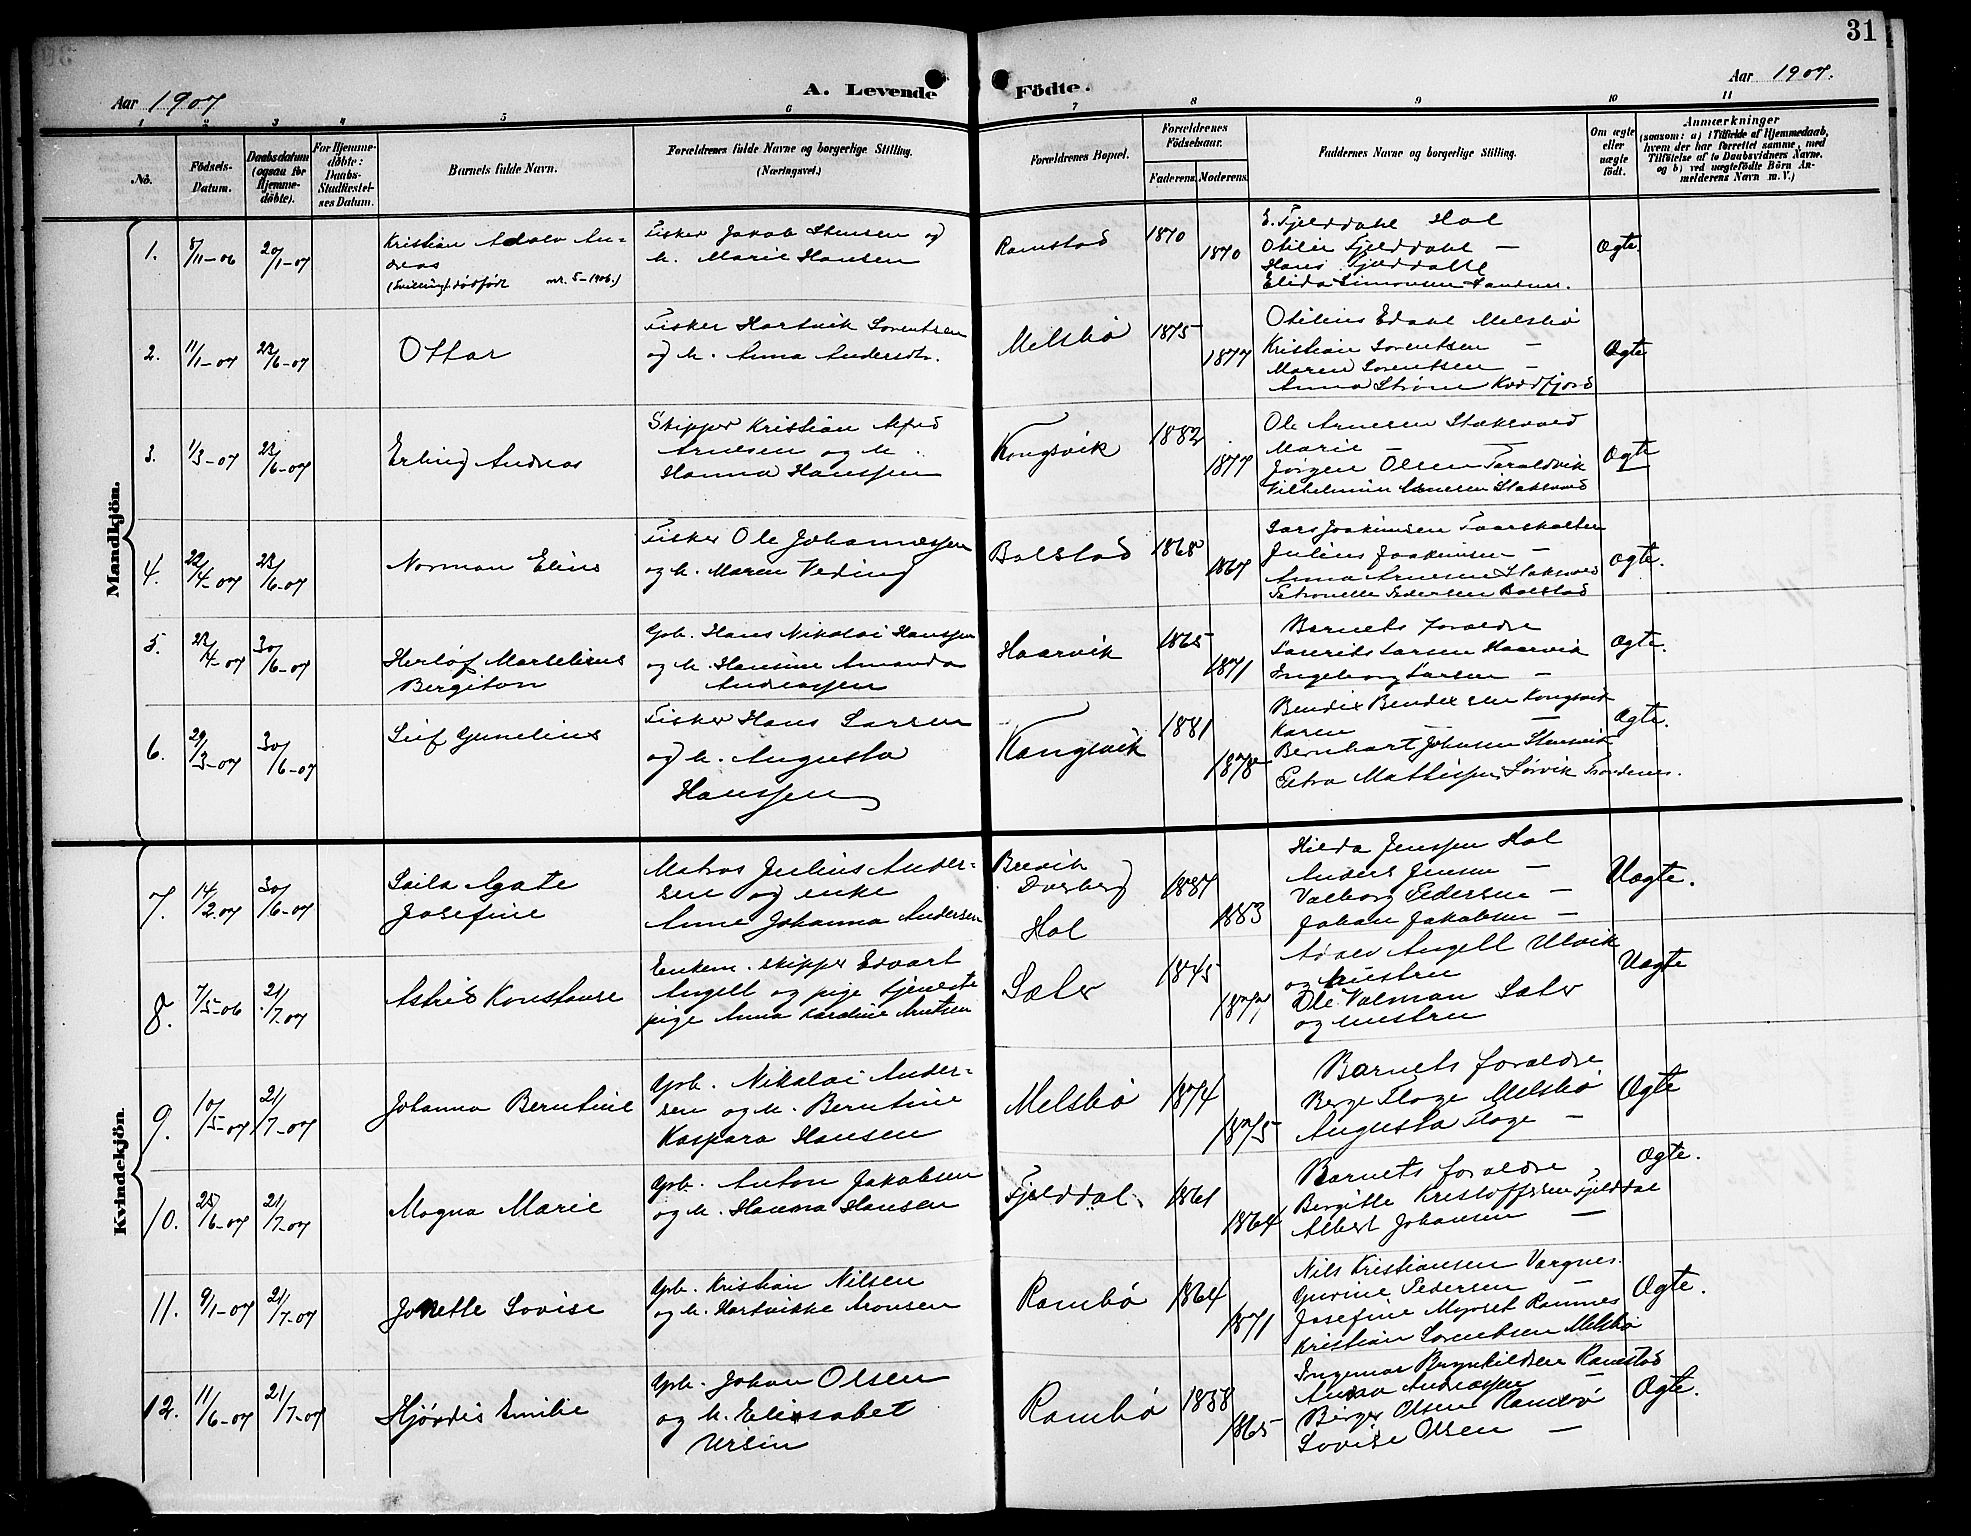 31
Aar 1907
A. Levende Födte.
Aar 1907.
1 2 3 4 5 6 7 8 9 10 11
No.
Födsels-
Datum.
Daabsdatum
(ogsaa for
Hjemme-
döbte).
For Hjemme-
döbte:
Daabs-
Stadfæstel-
ses Datum.
Barnets fulde Navn.
Forældrenes fulde Navne og borgerlige Stilling.
(Næringsvei.)
Forældrenes Bopæl.
Forældrenes
Födselsaar.
Faderens. Moderens.
Faddernes Navne og borgerlige Stilling.
Om ægte
eller
uægte
født.
Anmærkninger
(saasom: a) i Tilfælde af Hjemmedaab,
hvem der har forrettet samme, med
Tilföielse af to Daabsvidners Navne,
og b) ved uægtefödte Börn An-
melderens Navn m. V.)
Mandkjön.
1. 8/11-06 20/1-07
Kristian Adolv An-
dreas
(Tvilling) dødfødt nr. 5-1906.)
Fisker Jakob Stensen og
h. Marie Hansen
Ramstad 1870 1870
E. Fjelddahl Hol
Otilie Fjelddahl —
Hans Fjelddahl
Elida Simonsen Sandnes.
Ægte
2. 11/1-07 23/6-07
Ottar
Fisker Hartvik Sorentsen
og h. Anna Andersdtr.
Melsbø 1875 1877
Otilius Edahl Melsbø
Kristian Sorentsen —
Maren Sorentsen —
Anna Strøm Kvædfjord
Ægte
3. 1/3-07 23/6-07
Erling Andreas
Skipper Kristian Alfred
Arnesen og h.
Hanna Hanssen
Kongsvik 1882 1877
Ole Arnesen Staksvold
Marie —
Jørgen Olsen Taraldvik
Vilhelmine Arnesen Staksvold
Ægte
4. 22/4-07 23/6-07
Norman Elius
Fisker Ole Johannessen
og h. Maren Veding
Bolstad 1868 1867
Lars Joakimsen Faarskalten
Julius Joakimsen —
Anna Arnesen Staksvold
Petronelle Pedersen Bolstad
Ægte.
5. 23/4-07 30/6-07
Herlof Martelius
Bergiton
Gbr. Hans Nikolai Hanssen
og h. Hansine Amanda
Andreassen
Haarvik 1865 1871
Barnets forældre
Laurits Larsen Haarvik
Ingeborg Larsen —
Ægte.
6. 29/3-07 30/6-07
Leif Gunelius
Fisker Hans Larsen
og h. Augusta
Hanssen
Kongsvik 1881 1878
Bendix Bendixsen Kongsvik
Karen —
Bernhart Johnsen Stensvik
Petra Mathisen Sørvik Trondenes.
Ægte.
Kvindekjön.
7. 14/2.07 30/6-07
Laila Agate
Josefine
Matros Julius Ander-
sen og enke
Anne Johanna Andersen
Breivik
Dverberg
Hol
1887 1883
Hilda Jenssen Hol
Anders Jensen —
Valborg Pedersen —
Johan Jakobsen —
Uægte.
8. 7/5-06 21/7.07
Astrid Konstanse
Enkem. skipper Edvart
Angell og pige tjeneste
pige Anna Kardine Arntsen
Sæter 1845 1877
Adolv Angell Ulvik
og hustru
Ole Valman Sæter
og hustru
Uægte
9. 10/5-07 21/7-07
Johanna Berntine
Gbr. Nikolai Ander-
sen og h. Berntine
Kaspara Hansen
Melsbø 1874 1875
Barnets forældre
Berge Floge Melsbø
Augusta Floge —
Ægte
10. 25/6-07 21/7-07
Magna Marie
Gbr. Anton Jakobsen
og h. Hanna Hansen
Fjelddal 1861 1864
Barnets forældre
Bergitte Kristoffersen Fjelddal
Albert Johansen —
Ægte.
11. 9/1-07 21/7-07
Jonette Lovise
Gbr. Kristian Nilsen
og h. Hartvikke Aronsen
Rambø 1864 1871
Nils Kristiansen Vargnes.
Gurine Pedersen —
Josefine Myrset Ramnes
Kristian Sorentsen Melsbø
Ægte.
12. 11/6-07 21/7-07
Hjørdis Emilie
Gbr. Johan Olsen
og h. Elisabet
Ursin
Rambø 1858 1865
Ingemar Brynhildsen Ramstad
Anna Andreassen —
Berger Olsen Rambø
Lovise Olsen —
Ægte.